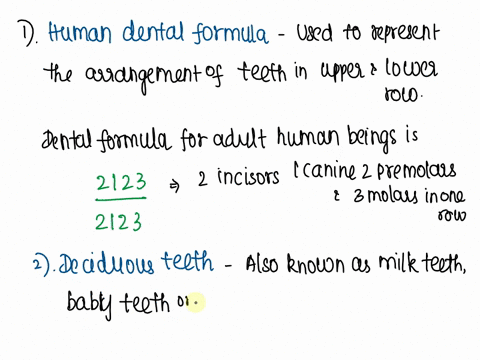 1). Human dental formula - Used to represent
the arrangement of teeth in upper & lower
row.
Dental formula for adult human beings is
2123 ⇒ 2 incisors 1 canine 2 premolars
2123 & 3 molars in one
row
2). Deciduous teeth - Also known as milk teeth,
baby teeth or